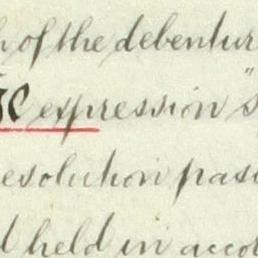 of the debentur
expression "s
esolution pass
held in acco